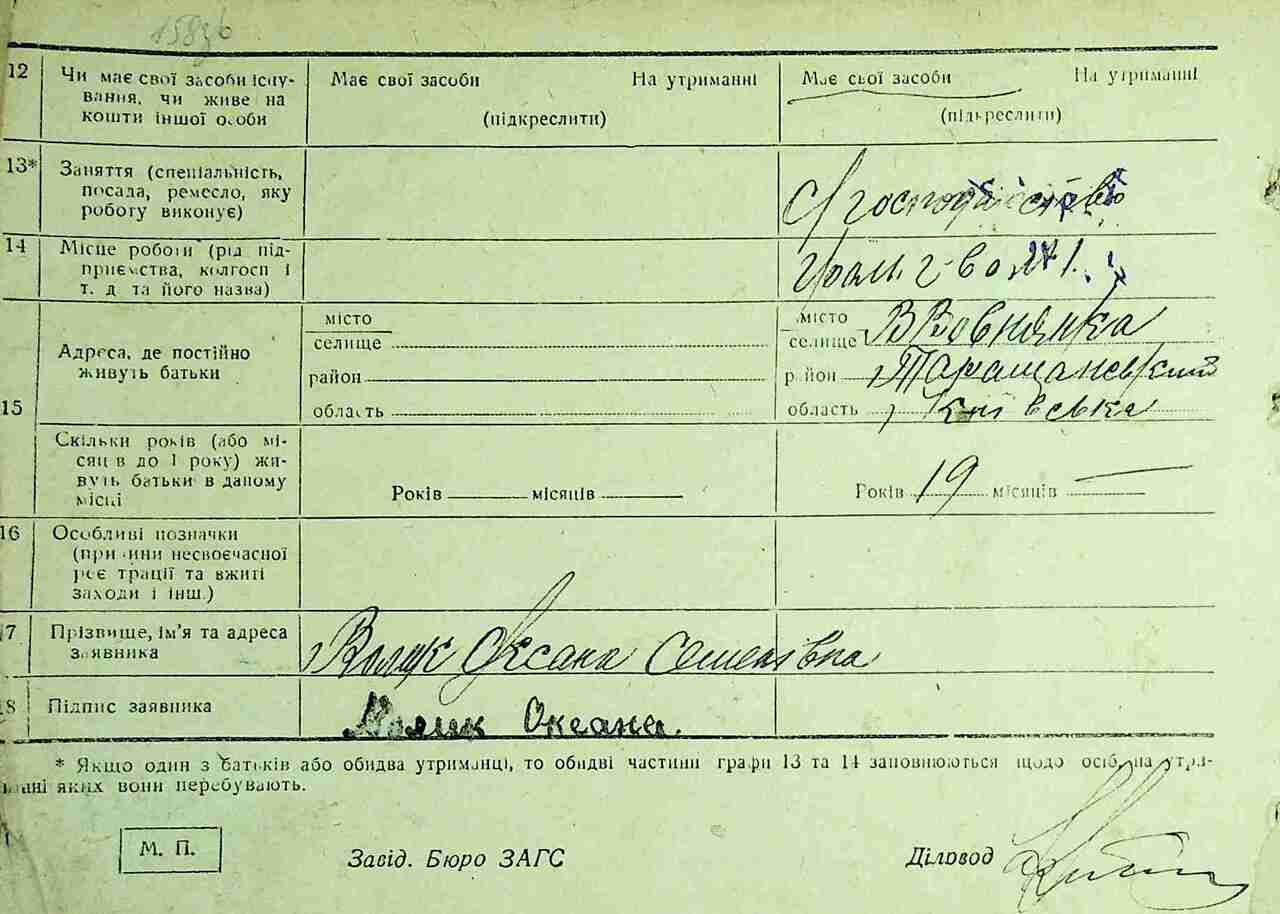 12 Чи має свої засоби існу-
вання, чи живе на
кошти іншої особи
Має свої засоби На утриманні
(підкреслити)
Має свої засоби На утриманні
(підкреслити)
13* Заняття (спеціальність,
посада, ремесло, яку
роботу виконує)
14 Місце роботи (рід під-
приємства, колгосп і
т. д та його назва)
Гром. г-во №1.
15 Адреса, де постійно
живуть батьки
місто
селище
район
область
місто
селище ВВовнянка
район Таращанський
область Київська
Скільки років (або мі-
сяц в до 1 року) жи-
вуть батьки в даному
місці
Років місяців
Років 19 місяців —
16 Особливі позначки
(при ини несвоєчасної
реє трації та вжиті
заходи і інш.)
7 Прізвище, ім’я та адреса
заявника
Оксана Семенівна
8 Підпис заявника
Оксана.
* Якщо один з батьків або обидва утриманці, то обидві частини графи 13 та 14 заповнюються щодо осіб, на утри-
манні яких вони перебувають.
М. П.
Завід. Бюро ЗАГС
Діловод